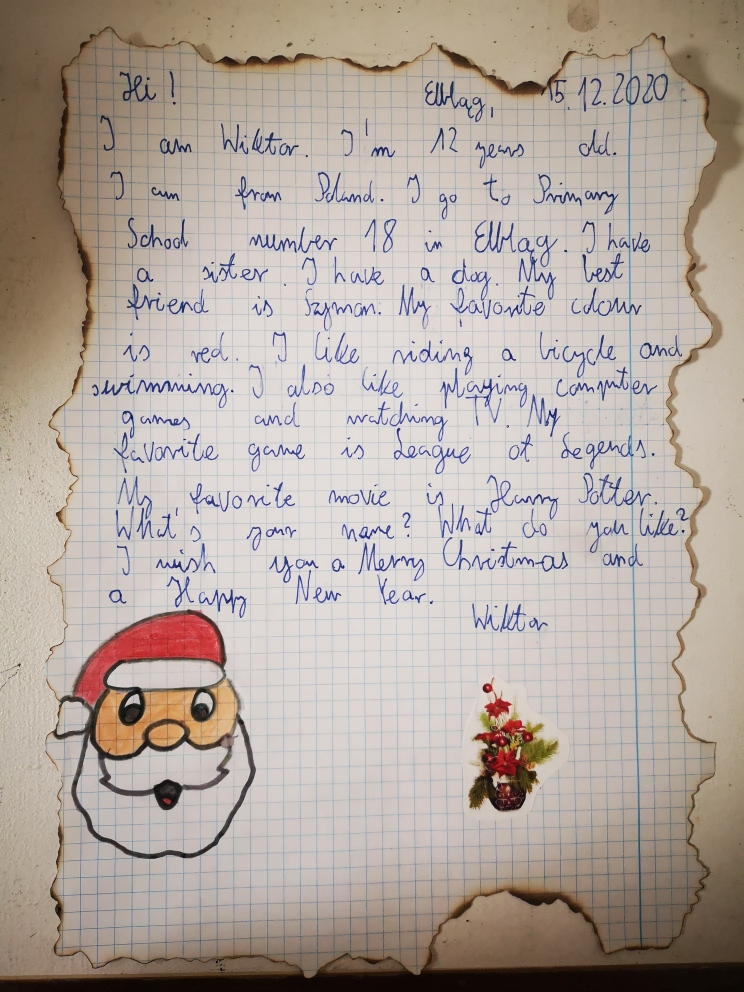 Hi! Elbląg, 15.12.2020
I am Wiktor. I'm 12 years old.
I am from Poland. I go to Primary
School number 18 in Elbląg. I have
a sister. I have a dog. My best
friend is Szymon. My favorite colour
is red. I like riding a bicycle and
swimming. I also like playing computer
games and watching TV. My
favorite game is League of Legends.
My favorite movie is Harry Potter.
What's your name? What do you like?
I wish you a Merry Christmas and
a Happy New Year.
Wiktor